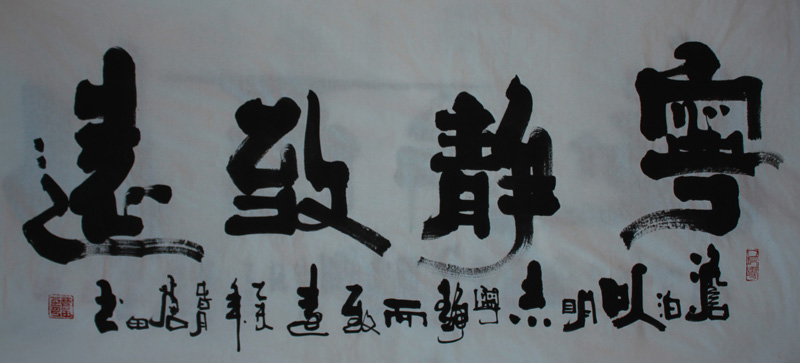 寧靜致遠
澹泊以明志寧靜而致遠年春月田书